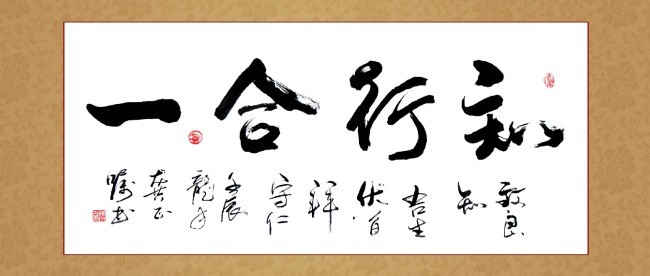 知行合一
致良
知
吉生
伏首
祥
守仁
壬辰
龍年
龔正